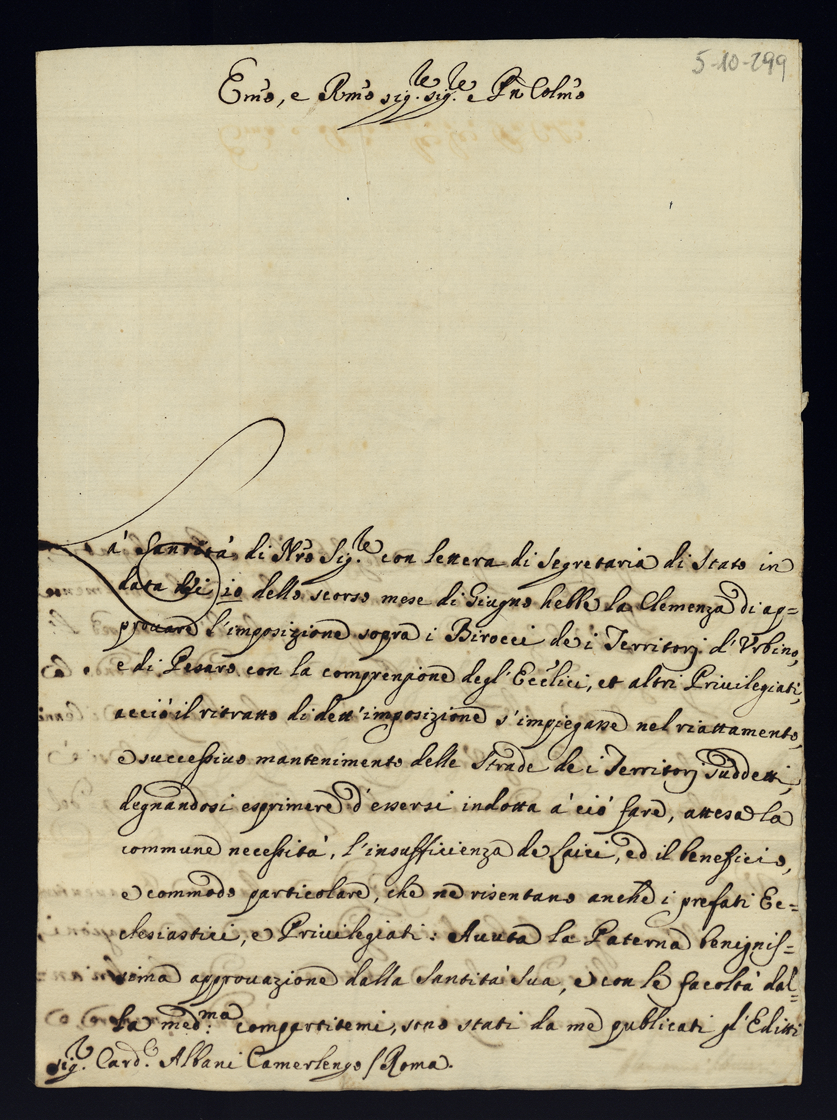 5-10-299
Em̃o, e Rm̃o sig.re sig.re e Pñ Colm̃o
La Santità di Nr̃o Sig.re con lettera di Segretaria di Stato in
data delli 10 dello scorso mese di Giugno hebbe la Clemenza di ap=
provare l'imposizione sopra i Birocci de i Territorj d'Urbino,
e di Pesaro con la comprensione degl'Ecc̃lici, et altri Privilegiati,
acciò il ritratto di dett'imposizione s'impiegasse nel riattamento,
e successivo mantenimento delle Strade de i Territorj suddetti,
degnandosi esprimere d'essersi indotta à ciò fare, attesa la
commune necessità, l'insufficienza de Laici, ed il beneficio,
e commodo particolare, che ne risentano anche i prefati Ec=
clesiastici, e Privilegiati: Avuta la Paterna benignis=
sima approvazione dalla Santità Sua, e con le facoltà dal=
la med:ma compartitemi, sono stati da me publicati gl'Editti
sig.r Card.le Albani Camerlengo / Roma.